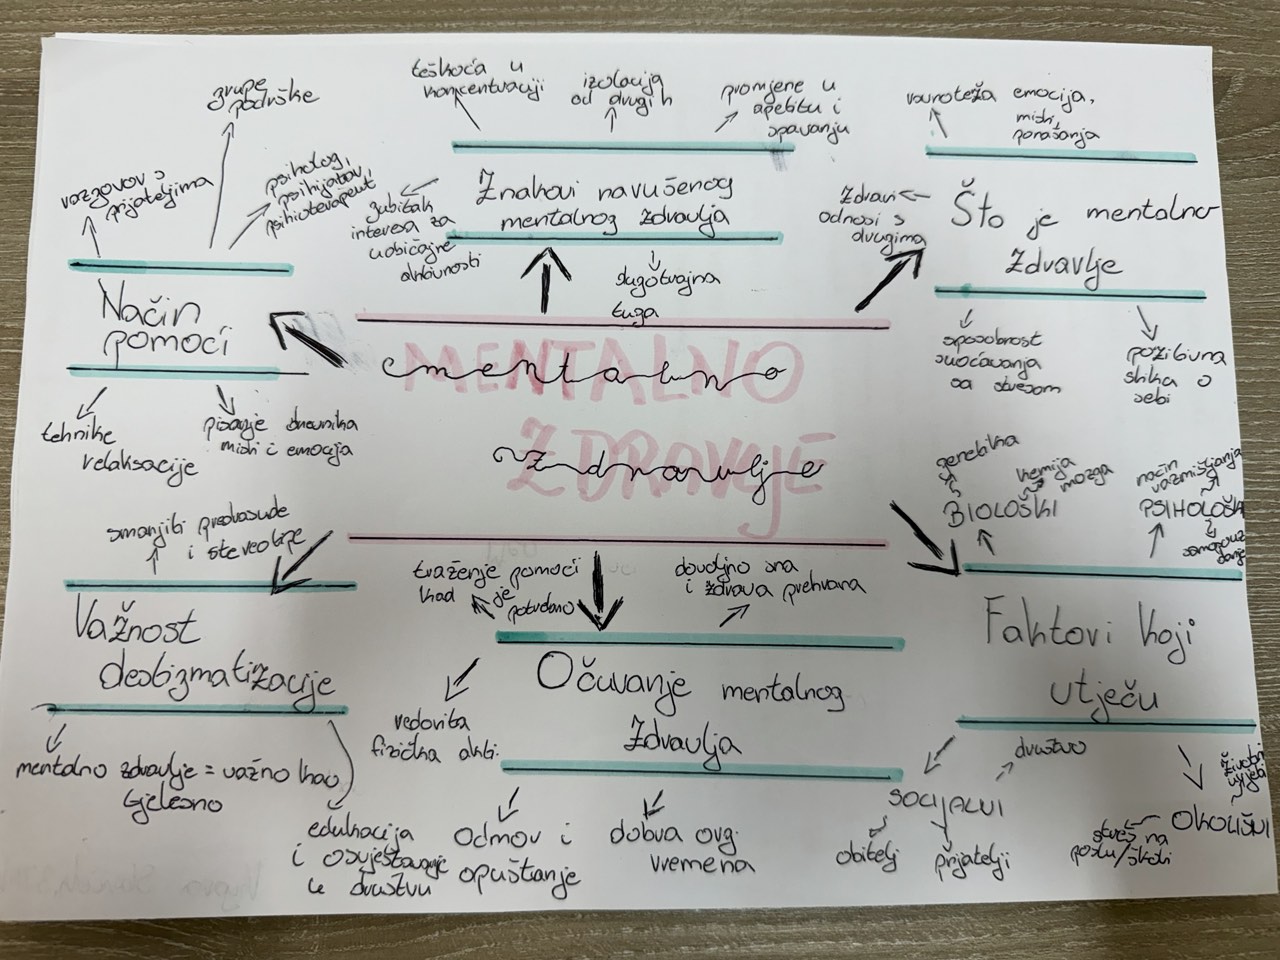 grupe
podrške
razgovor s
prijateljima
psiholog,
psihijatar,
psihoterapeut
Način
pomoći
tehnike
relaksacije
pisanje dnevnika
misli i emocija
teškoća u
koncentraciji
izolacija
od drugih
promjene u
apetitu i
spavanju
Znakovi narušenog
mentalnog zdravlja
gubitak
interesa za
uobičajne
aktivnosti
dugotrajna
tuga
ravnoteža emocija,
misli,
ponašanja
Zdravi
odnosi s
drugima
Što je mentalno
zdravlje
sposobnost
suočavanja
sa stresom
pozitivna
slika o
sebi
MENTALNO
mentalno
ZDRAVLJE
zdravlje
smanjiti predrasude
i stereotipe
Važnost
destigmatizacije
mentalno zdravlje = važno kao
tjelesno
edukacija
i osvještavanje
u društvu
traženje pomoći
kad je
potrebno
dovoljno sna
i zdrava prehrana
Očuvanje mentalnog
zdravlja
redovita
fizička akti.
odmor i
opuštanje
dobra org.
vremena
genetika
kemija
mozga
BIOLOŠKI
način
razmišljanja
PSIHOLOŠKI
Faktori koji
utječu
društvo
SOCIJALNI
obitelj
prijatelji
životni
uvjeti
OKOLIŠNI
stres na
poslu/školi